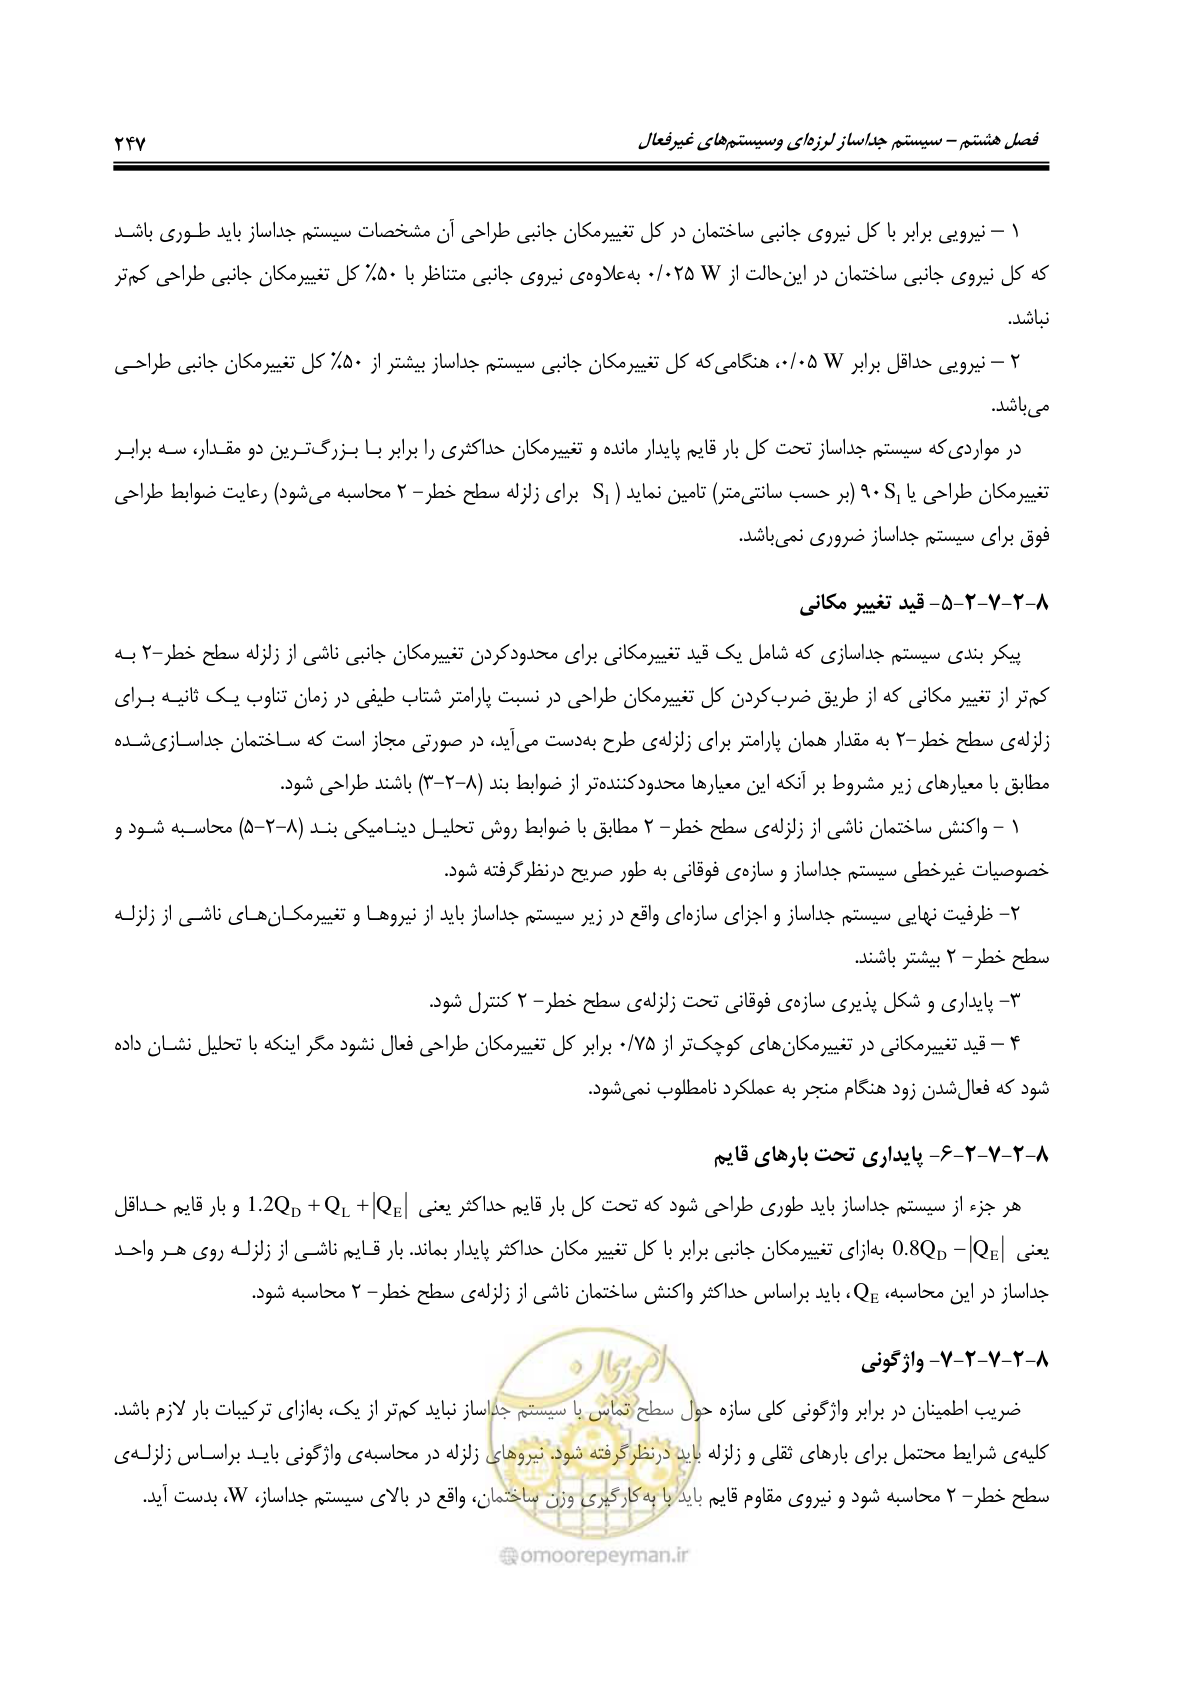 فصل هشتم – سیستم جداساز لرزه‌ای وسیستم‌های غیرفعال ۲۴۷
۱ – نیرویی برابر با کل نیروی جانبی ساختمان در کل تغییرمکان جانبی طراحی آن مشخصات سیستم جداساز باید طوری باشد
که کل نیروی جانبی ساختمان در این‌حالت از ۰/۰۲۵ W به‌علاوه‌ی نیروی جانبی متناظر با ۵۰٪ کل تغییرمکان جانبی طراحی کم‌تر
نباشد.
۲ – نیرویی حداقل برابر ۰/۰۵ W، هنگامی‌که کل تغییرمکان جانبی سیستم جداساز بیشتر از ۵۰٪ کل تغییرمکان جانبی طراحی
می‌باشد.
در مواردی‌که سیستم جداساز تحت کل بار قایم پایدار مانده و تغییرمکان حداکثری را برابر با بزرگ‌ترین دو مقدار، سه برابر
تغییرمکان طراحی یا ۹۰S₁ (بر حسب سانتی‌متر) تامین نماید ( S₁ برای زلزله سطح خطر- ۲ محاسبه می‌شود) رعایت ضوابط طراحی
فوق برای سیستم جداساز ضروری نمی‌باشد.
۸-۲-۷-۲-۵- قید تغییر مکانی
پیکر بندی سیستم جداسازی که شامل یک قید تغییرمکانی برای محدودکردن تغییرمکان جانبی ناشی از زلزله سطح خطر-۲ به
کم‌تر از تغییر مکانی که از طریق ضرب‌کردن کل تغییرمکان طراحی در نسبت پارامتر شتاب طیفی در زمان تناوب یک ثانیه برای
زلزله‌ی سطح خطر-۲ به مقدار همان پارامتر برای زلزله‌ی طرح به‌دست می‌آید، در صورتی مجاز است که ساختمان جداسازی‌شده
مطابق با معیارهای زیر مشروط بر آنکه این معیارها محدودکننده‌تر از ضوابط بند (۸-۲-۳) باشند طراحی شود.
۱ - واکنش ساختمان ناشی از زلزله‌ی سطح خطر- ۲ مطابق با ضوابط روش تحلیل دینامیکی بند (۸-۲-۵) محاسبه شود و
خصوصیات غیرخطی سیستم جداساز و سازه‌ی فوقانی به طور صریح درنظرگرفته شود.
۲- ظرفیت نهایی سیستم جداساز و اجزای سازه‌ای واقع در زیر سیستم جداساز باید از نیروها و تغییرمکان‌های ناشی از زلزله
سطح خطر- ۲ بیشتر باشند.
۳- پایداری و شکل پذیری سازه‌ی فوقانی تحت زلزله‌ی سطح خطر- ۲ کنترل شود.
۴ – قید تغییرمکانی در تغییرمکان‌های کوچک‌تر از ۰/۷۵ برابر کل تغییرمکان طراحی فعال نشود مگر اینکه با تحلیل نشان داده
شود که فعال‌شدن زود هنگام منجر به عملکرد نامطلوب نمی‌شود.
۸-۲-۷-۲-۶- پایداری تحت بارهای قایم
هر جزء از سیستم جداساز باید طوری طراحی شود که تحت کل بار قایم حداکثر یعنی 1.2Q_D + Q_L + |Q_E| و بار قایم حداقل
یعنی 0.8Q_D − |Q_E| به‌ازای تغییرمکان جانبی برابر با کل تغییر مکان حداکثر پایدار بماند. بار قایم ناشی از زلزله روی هر واحد
جداساز در این محاسبه، Q_E، باید براساس حداکثر واکنش ساختمان ناشی از زلزله‌ی سطح خطر- ۲ محاسبه شود.
۸-۲-۷-۲-۷- واژگونی
ضریب اطمینان در برابر واژگونی کلی سازه حول سطح تماس با سیستم جداساز نباید کم‌تر از یک، به‌ازای ترکیبات بار لازم باشد.
کلیه‌ی شرایط محتمل برای بارهای ثقلی و زلزله باید درنظرگرفته شود. نیروهای زلزله در محاسبه‌ی واژگونی باید براساس زلزله‌ی
سطح خطر- ۲ محاسبه شود و نیروی مقاوم قایم باید با به‌کارگیری وزن ساختمان، واقع در بالای سیستم جداساز، W، بدست آید.
امور پیمان
@omoorepeyman.ir